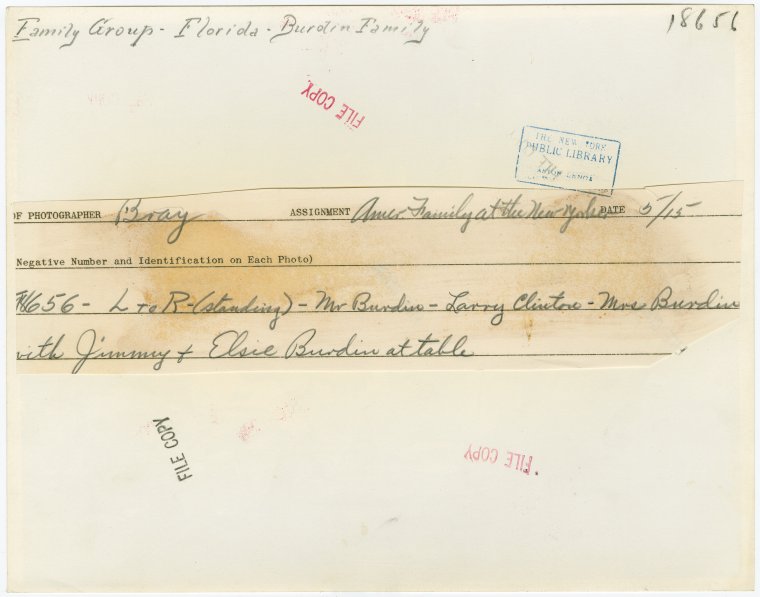 Family Group - Florida - Burdin Family
18656
FILE COPY
THE NEW YORK
PUBLIC LIBRARY
OF PHOTOGRAPHER Bray ASSIGNMENT Amer Family at the New Yorker DATE 5/15
Negative Number and Identification on Each Photo)
18656 - L to R - (standing) - Mr Burdin - Larry Clinton - Mrs Burdin
with Jimmy & Elsie Burdin at table
FILE COPY
FILE COPY